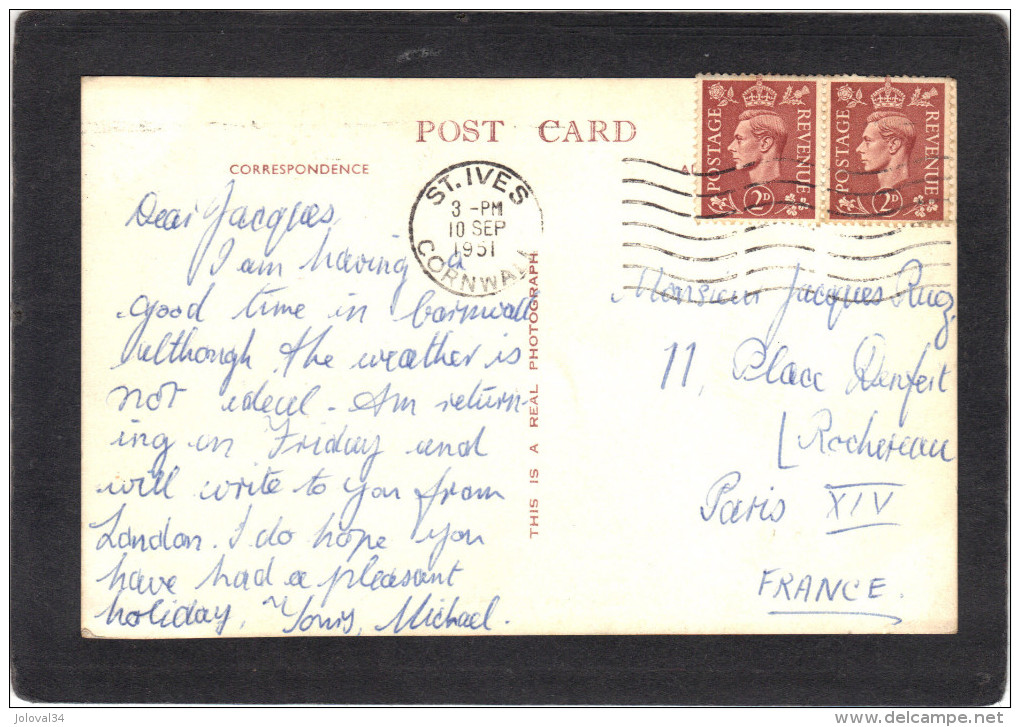 POST CARD
CORRESPONDENCE
ST. IVES
3 - PM
10 SEP
1951
CORNWALL
POSTAGE REVENUE
2D
POSTAGE REVENUE
2D
Dear Jacques,
I am having a
good time in Cornwall
although the weather is
not ideal. Am return-
ing on Friday and
will write to you from
London. I do hope you
have had a pleasant
holiday, Yours, Michael.
THIS IS A REAL PHOTOGRAPH
Monsieur Jacques Ruez,
11, Place Denfert
Rochereau
Paris XIV
FRANCE.
joloval34
www.delcampe.net